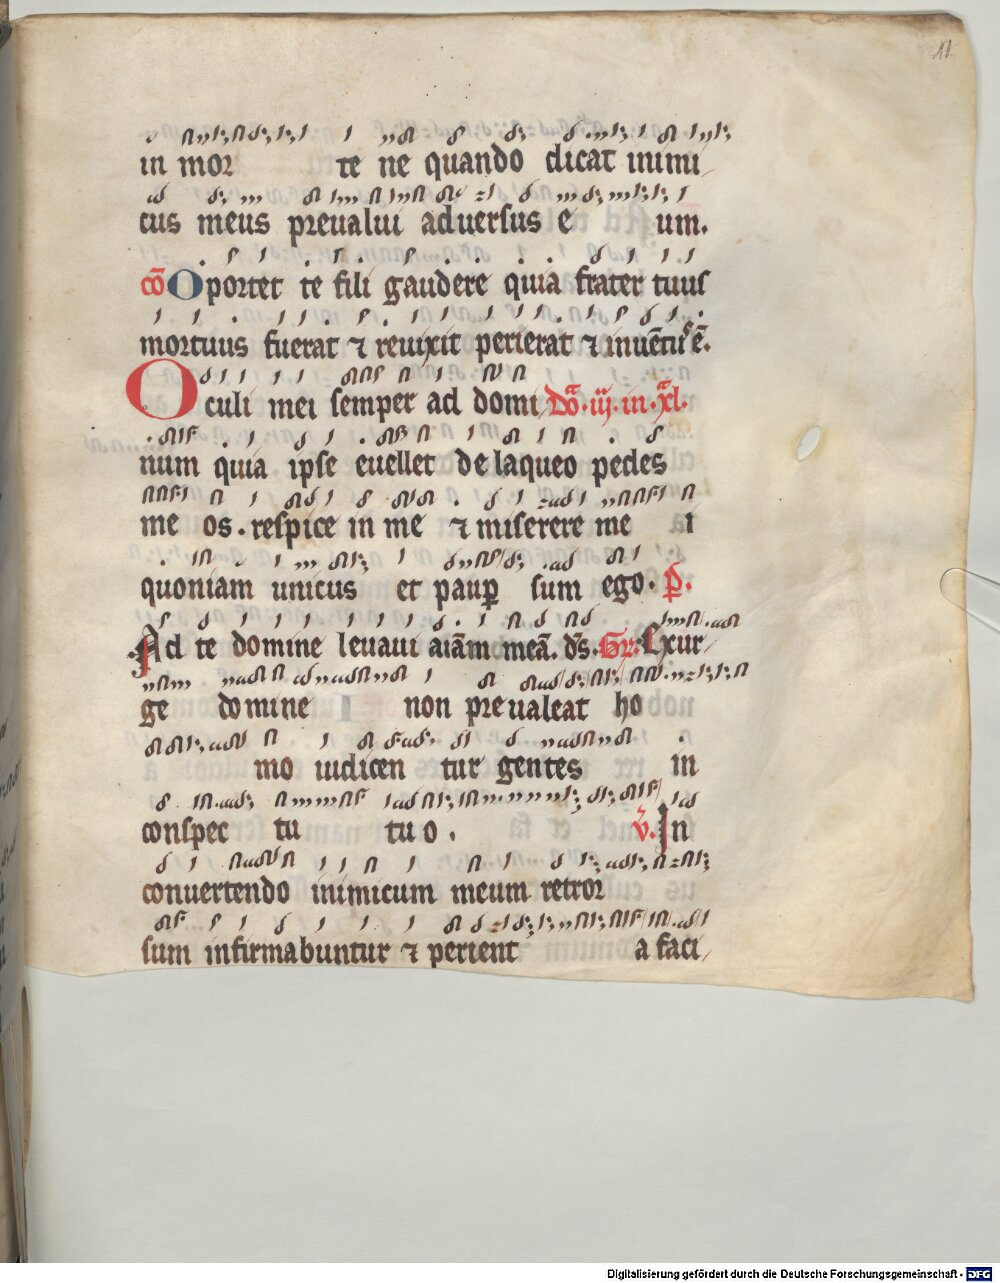 in mor te ne quando dicat inimi
cus meus preualui aduersus e um.
cō Oportet te fili gaudere quia frater tuus
mortuus fuerat ⁊ reuixit perierat ⁊ inuentus ē.
Oculi mei semper ad domi Dō. iij. in. xl.
num quia ipse euellet de laqueo pedes
me os. respice in me ⁊ miserere me i
quoniam unicus et paup sum ego. p̄.
Ad te domine leuaui aiām meā. ds. Gr. Exur
ge domine non preualeat ho
mo iudicen tur gentes in
conspec tu tuo. v. In
conuertendo inimicum meum retror
sum infirmabuntur ⁊ perient a faci
Digitalisierung gefördert durch die Deutsche Forschungsgemeinschaft - DFG